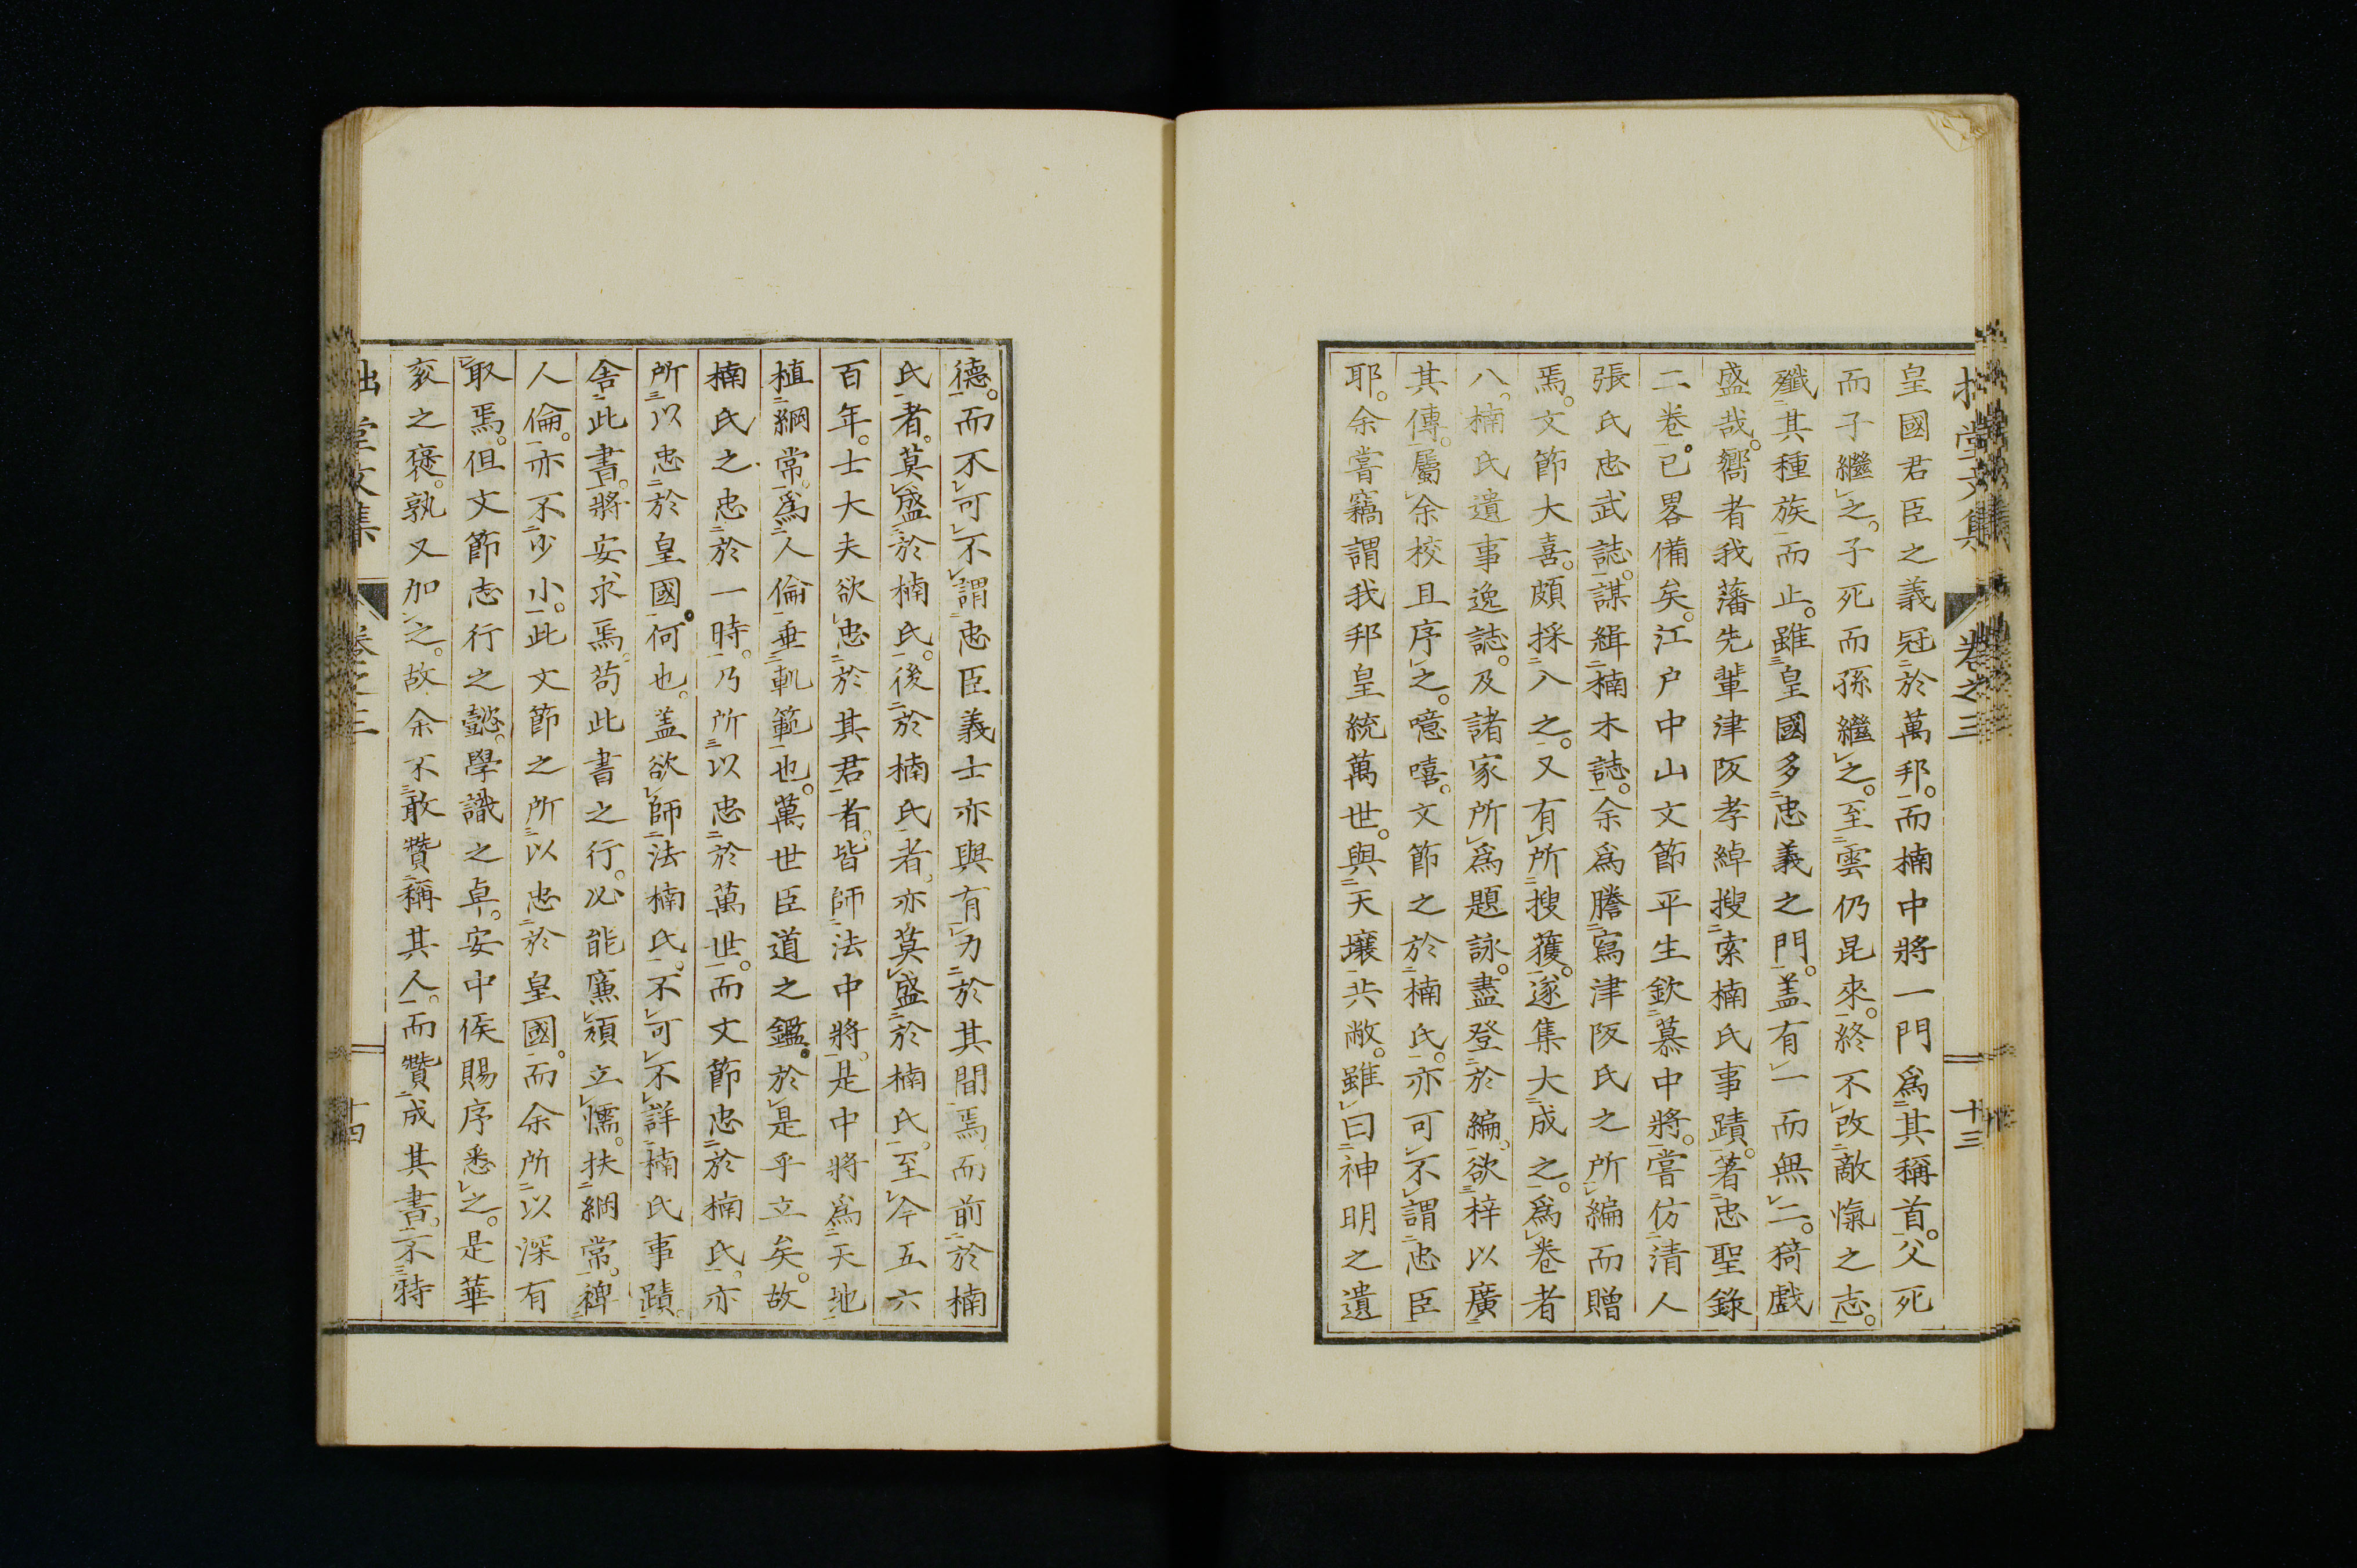 拙堂文集 卷之三 十三
皇國君臣之義冠於萬邦。而楠中將一門爲其稱首。父死
而子繼之。子死而孫繼之。至雲仍昆來。終不改敵愾之志。
殲其種族而止。雖皇國多忠義之門。盖有一而無二。猗戲
盛哉。嚮者我藩先輩津阪孝綽搜索楠氏事蹟。著忠聖錄
二卷。已畧備矣。江户中山文節平生欽慕中將。嘗仿清人
張氏忠武誌。謀緝楠木誌。余爲謄寫津阪氏之所編而贈
焉。文節大喜。頗採入之。又有所搜獲。遂集大成之。爲卷者
八。楠氏遺事逸誌。及諸家所爲題詠。盡登於編。欲梓以廣
其傳。屬余校且序之。噫嘻。文節之於楠氏。亦可不謂忠臣
耶。余嘗竊謂我邦皇統萬世。與天壤共敝。雖曰神明之遺
德。而不可不謂忠臣義士亦與有力於其間焉。而前於楠
氏者。莫盛於楠氏。後於楠氏者。亦莫盛於楠氏。至今五六
百年。士大夫欲忠於其君者。皆師法中將。是中將爲天地
植綱常。爲人倫垂軌範也。萬世臣道之鑑。於是乎立矣。故
楠氏之忠於一時。乃所以忠於萬世。而文節忠於楠氏。亦
所以忠於皇國。何也。盖欲師法楠氏。不可不詳楠氏事蹟。
舍此書。將安求焉。苟此書之行。必能廉頑立懦。扶綱常。裨
人倫。亦不少小。此文節之所以忠於皇國。而余所以深有
取焉。但文節志行之懿。學識之卓。安中侯賜序悉之。是華
袞之褒。孰又加之。故余不敢贊稱其人。而贊成其書。不特
拙堂文集 卷之三 十四